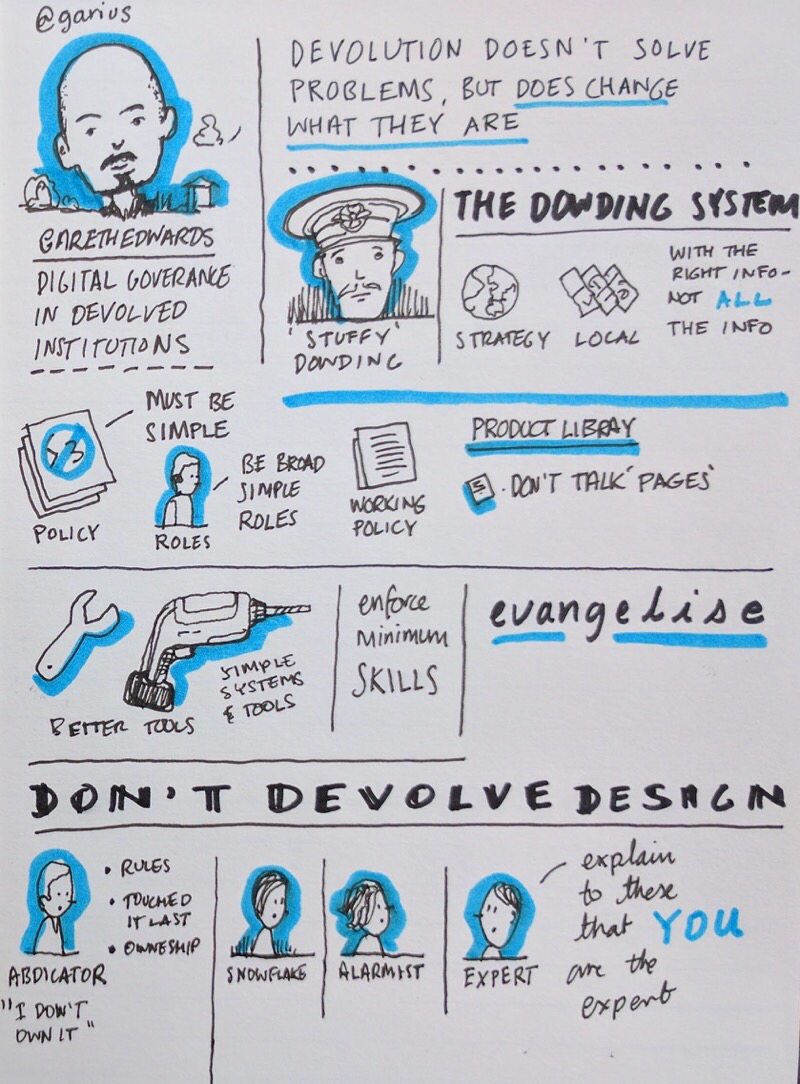 @garius
GARETHEDWARDS
DIGITAL GOVERANCE
IN DEVOLVED
INSTITUTIONS
DEVOLUTION DOESN'T SOLVE
PROBLEMS, BUT DOES CHANGE
WHAT THEY ARE
'STUFFY'
DOWDING
THE DOWDING SYSTEM
STRATEGY
LOCAL
WITH THE
RIGHT INFO-
NOT ALL
THE INFO
MUST BE
SIMPLE
POLICY
BE BROAD
SIMPLE
ROLES
ROLES
WORKING
POLICY
PRODUCT LIBRAY
. DON'T TALK 'PAGES'
BETTER TOOLS
SIMPLE
SYSTEMS
& TOOLS
enforce
MINIMUM
SKILLS
evangelise
DON'T DEVOLVE DESIGN
ABDICATOR
"I DON'T
OWN IT"
• RULES
• TOUCHED
IT LAST
• OWNESHIP
SNOWFLAKE
ALARMIST
EXPERT
explain
to these
that YOU
are the
expert